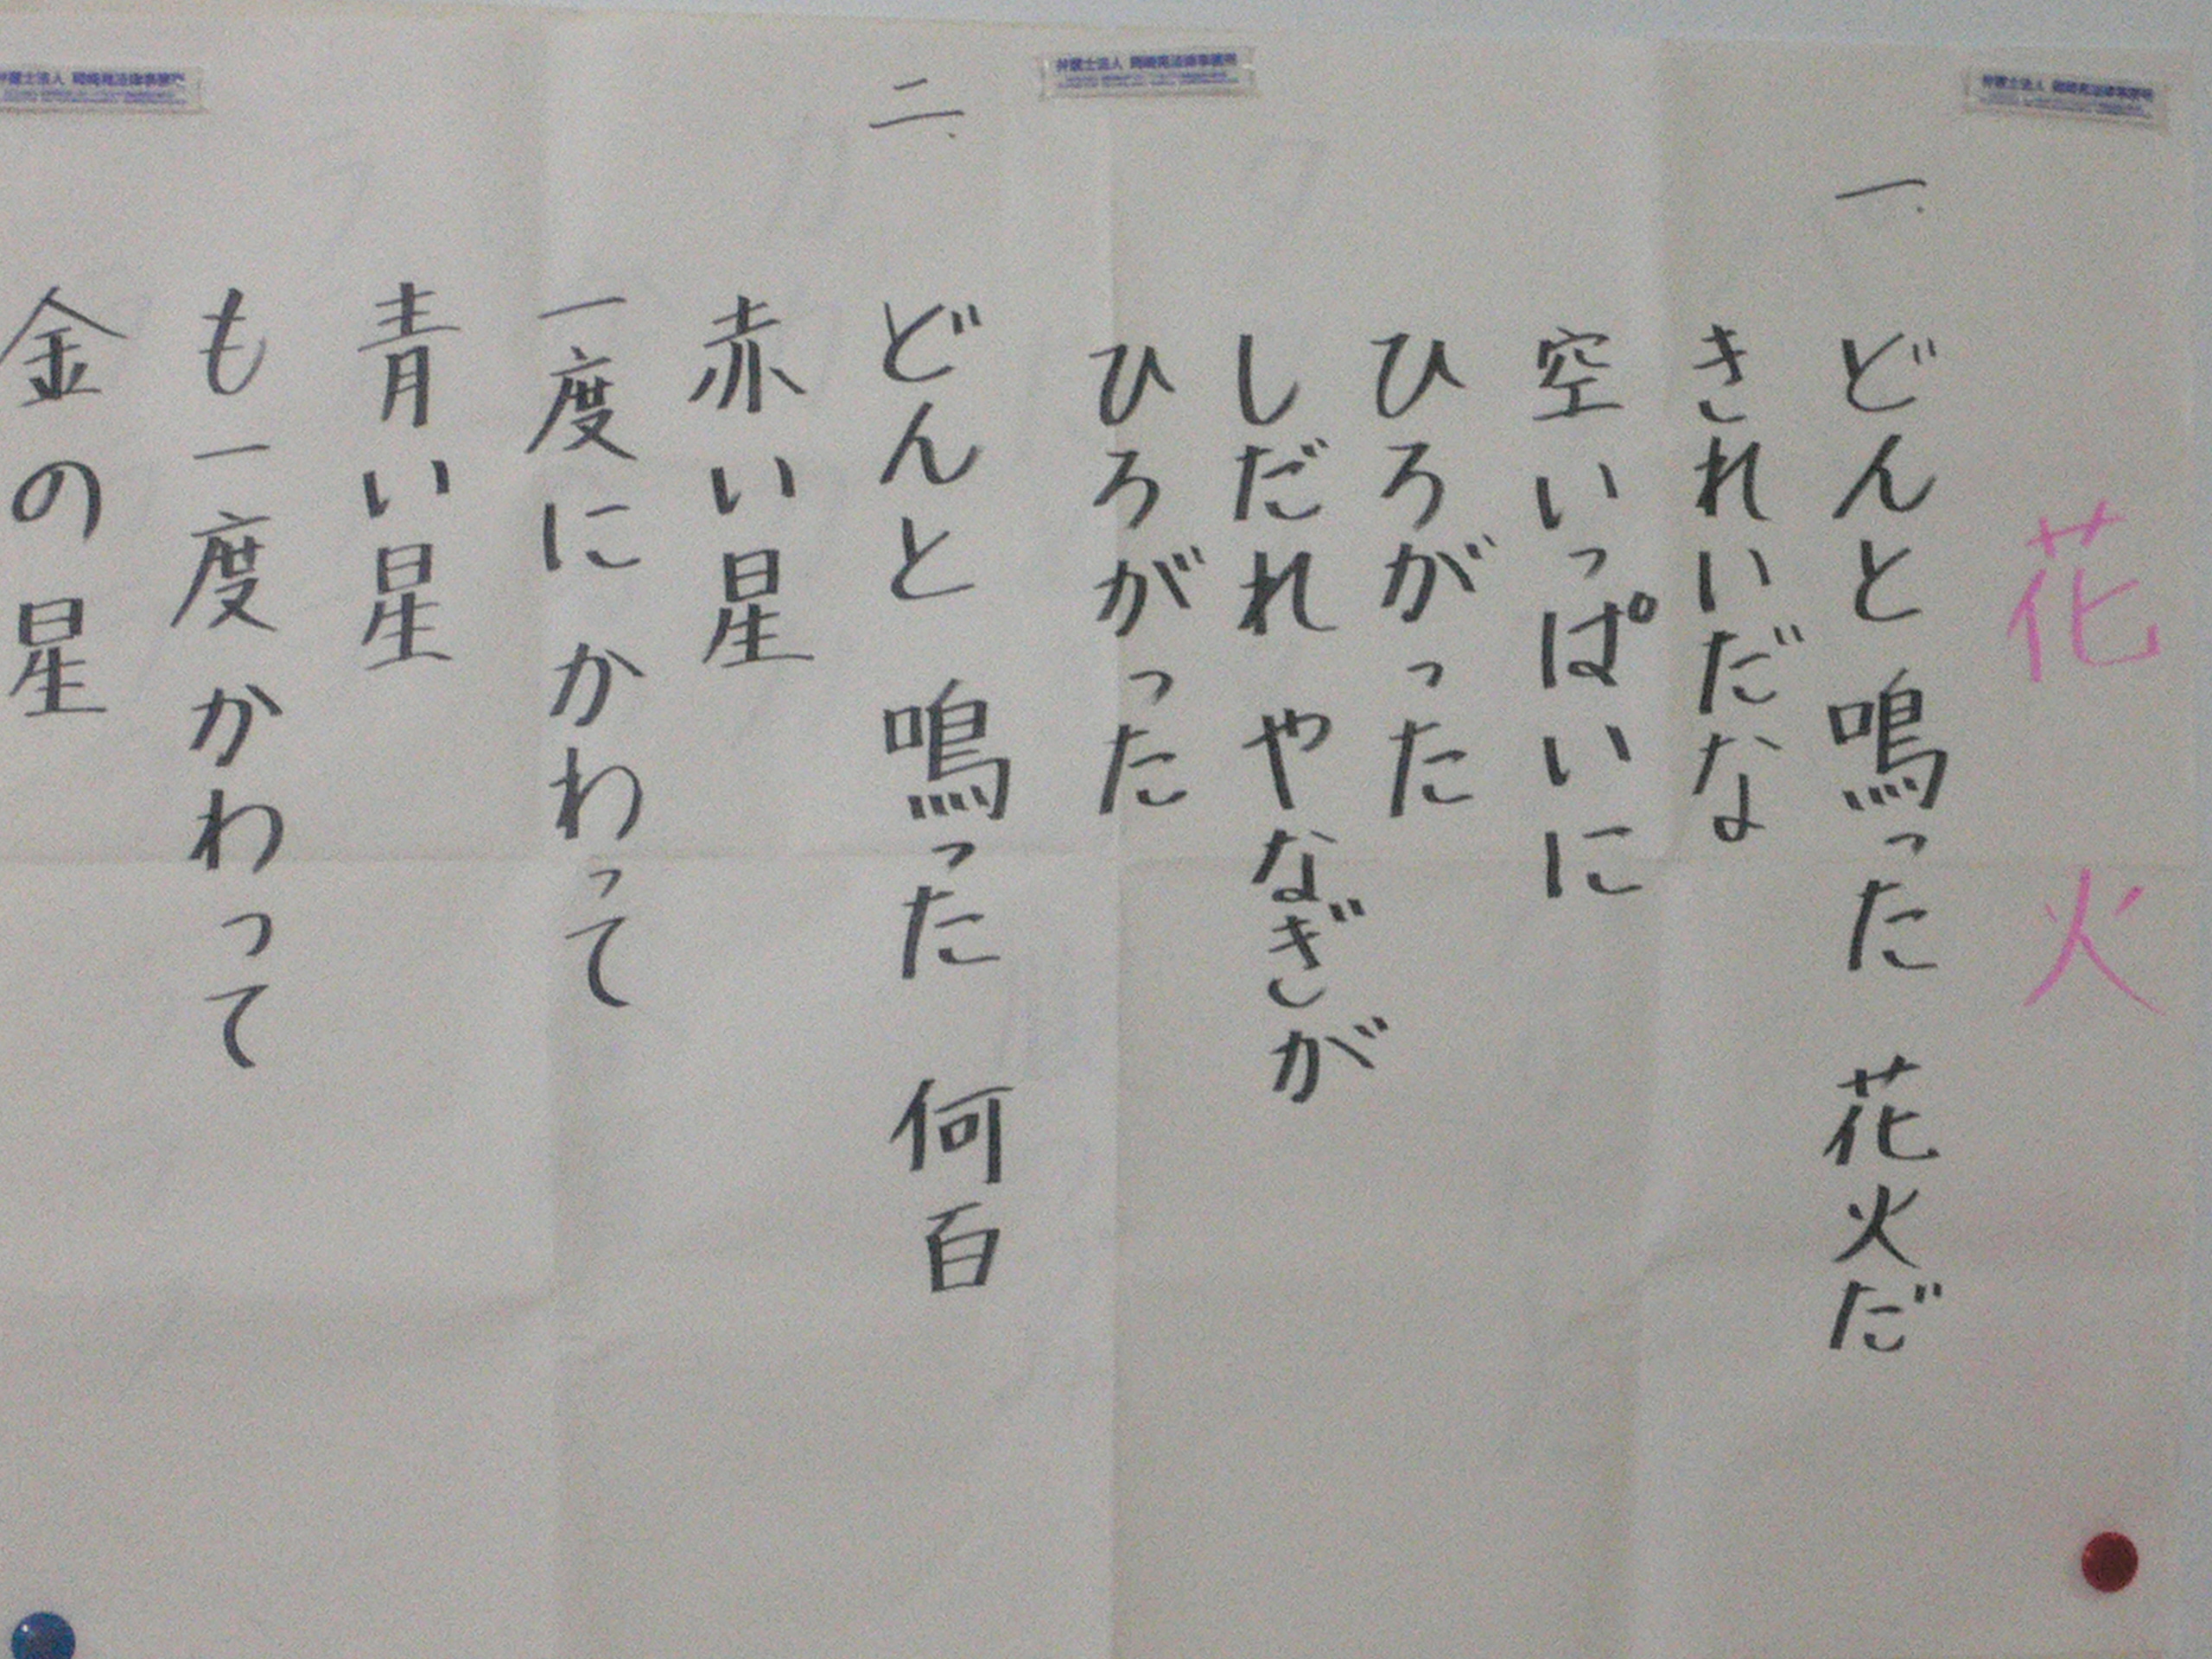 花火
一、
どんと鳴った 花火だ
きれいだな
空いっぱいに
ひろがった
しだれ やなぎが
ひろがった
二、
どんと 鳴った 何百
赤い星
一度にかわって
青い星
も一度かわって
金の星